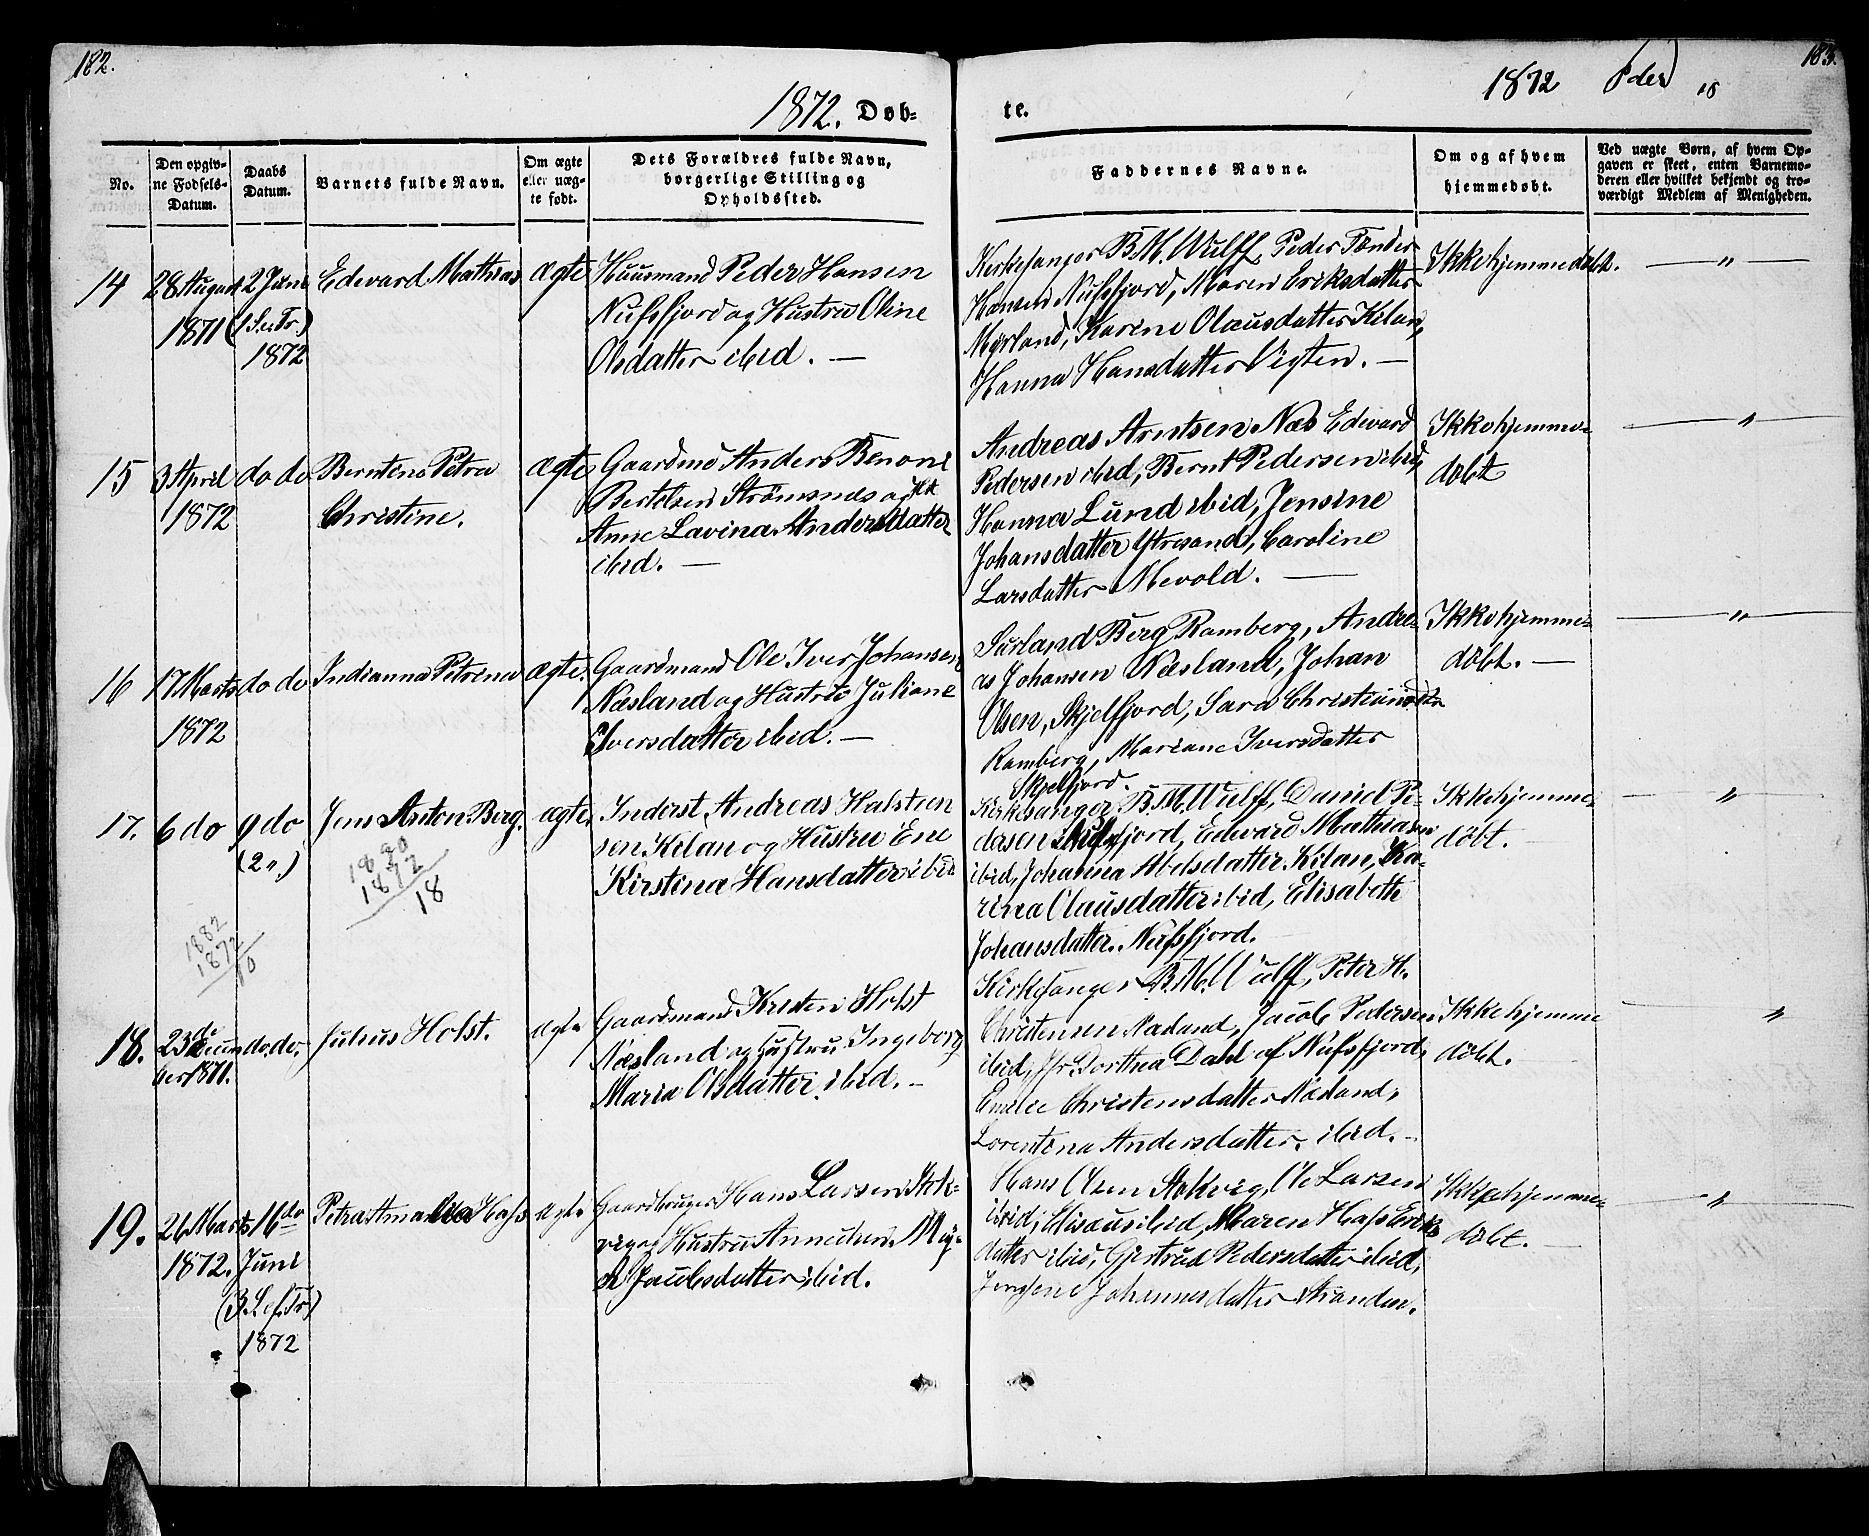 182.
183.
1872. Døb-
te.
1872
No.
Den opgiv-
ne Fødsels-
Datum.
Daabs
Datum.
Barnets fulde Navn.
Om ægte
eller uæg-
te født.
Dets Forældres fulde Navn,
borgerlige Stilling og
Opholdssted.
Faddernes Navne.
Om og af hvem
hjemmedøbt.
Ved uægte Børn, af hvem Op-
gaven er skeet, enten Barnemo-
deren eller hvilket bekjendt og tro-
værdigt Medlem af Menigheden.
14
28 August
1871
2 Juni
1872
Edevard Mathias
ægte
Huusmand Peder Hansen
Nufsfjord og Hustru Oline
Olsdatter ibid. —
Kirkesanger B.M. Wulff, Peder Tønder
Hansen Nufsfjord, Maren Eriksdatter
Myrland, Karine Olausdatter Kilan,
Hanna Hansdatter Vigten. —
Ikke hjemmedøbt.
— " —
15
3 April
1872
do do
Berntine Petra
Christine.
ægte
Gaardmd Anders Benoni
Bertelsen Strømsnes og
Anne Lavina Andersdatter
ibid. —
Andreas Arntsen Næs Edevard
Pedersen ibid, Bernt Pedersen ibid,
Hanna Lund ibid, Jensine
Johansdatter Ytresand, Caroline
Larsdatter Mevold. —
Ikke hjemme-
døbt
— " —
16
17 Marts
1872
do do
Indianna Petrina
ægte.
Gaardmand Ole Iver Johansen
Næsland og Hustru Juliane
Iversdatter ibid. —
Berg Ramberg, Andre-
as Johansen Næsland, Johan
Olsen, Skjelfjord, Sara
Ramberg, Mariane Iversdatter
Skjelfjord.
Ikke hjemme-
døbt. —
— " —
17.
6 do
9 do
(2 ".)
Jens Anton Berg.
ægte.
Inderst Andreas Halsteen
sen Kilan og Hustru Ene
Kirstina Hansdatter ibid
Kirkesanger B.M. Wulff, Daniel Pe-
dersen Nufsfjord, Edevard Mathiasen
ibid, Johanna Abelsdatter Kilan, Ka-
rina Olausdatter ibid, Elisabeth
Johansdatter. Nufsfjord.
Ikke hjemme
døbt.
— " —
1890
1872
18
1882
1872
10
18.
23de Decem
ber 1871.
do. do.
Julius Holst.
ægte
Gaardmand Kristen Holst
Næsland og Hustru Ingeborg
Maria Olsdatter ibid. —
Kirkesanger B.M. Wulff, Peter H.
Christensen Næsland, Jacob Pedersen
ibid, Dorthea Dahl af Nufsfjord,
Emelie Christensdatter Næsland,
Lorentina Andersdatter ibid. —
Ikke hjemme
døbt.
— " —
19.
26 Marts
1872.
16de
Juni
1872
Petra Amalia Hass
ægte
Gaardbruger Hans Larsen Stok-
vig og Hustru
Jacobsdatter ibid.
Hans Olsen Stokvig, Ole Larsen
ibid, ibid, Maren Hass Eriks
datter ibid, Gjertrud Pedersdatter ibid,
Johannesdatter Stranden.
Ikke hjemme-
døbt. —
— " —